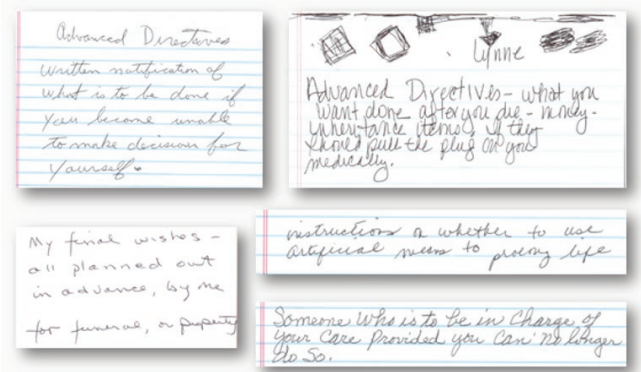 Advanced Directives
Written notification of
what is to be done if
you become unable
to make decision for
yourself.
Lynne
Advanced Directives - what you
want done after you die - money -
inheritance items & if they
should pull the plug on you
medically.
My final wishes -
all planned out
in advance, by me
for funeral, or property
instructions on whether to use
artificial means to prolong life
Someone who is to be in Charge of
Your Care Provided you Can no longer
do So.